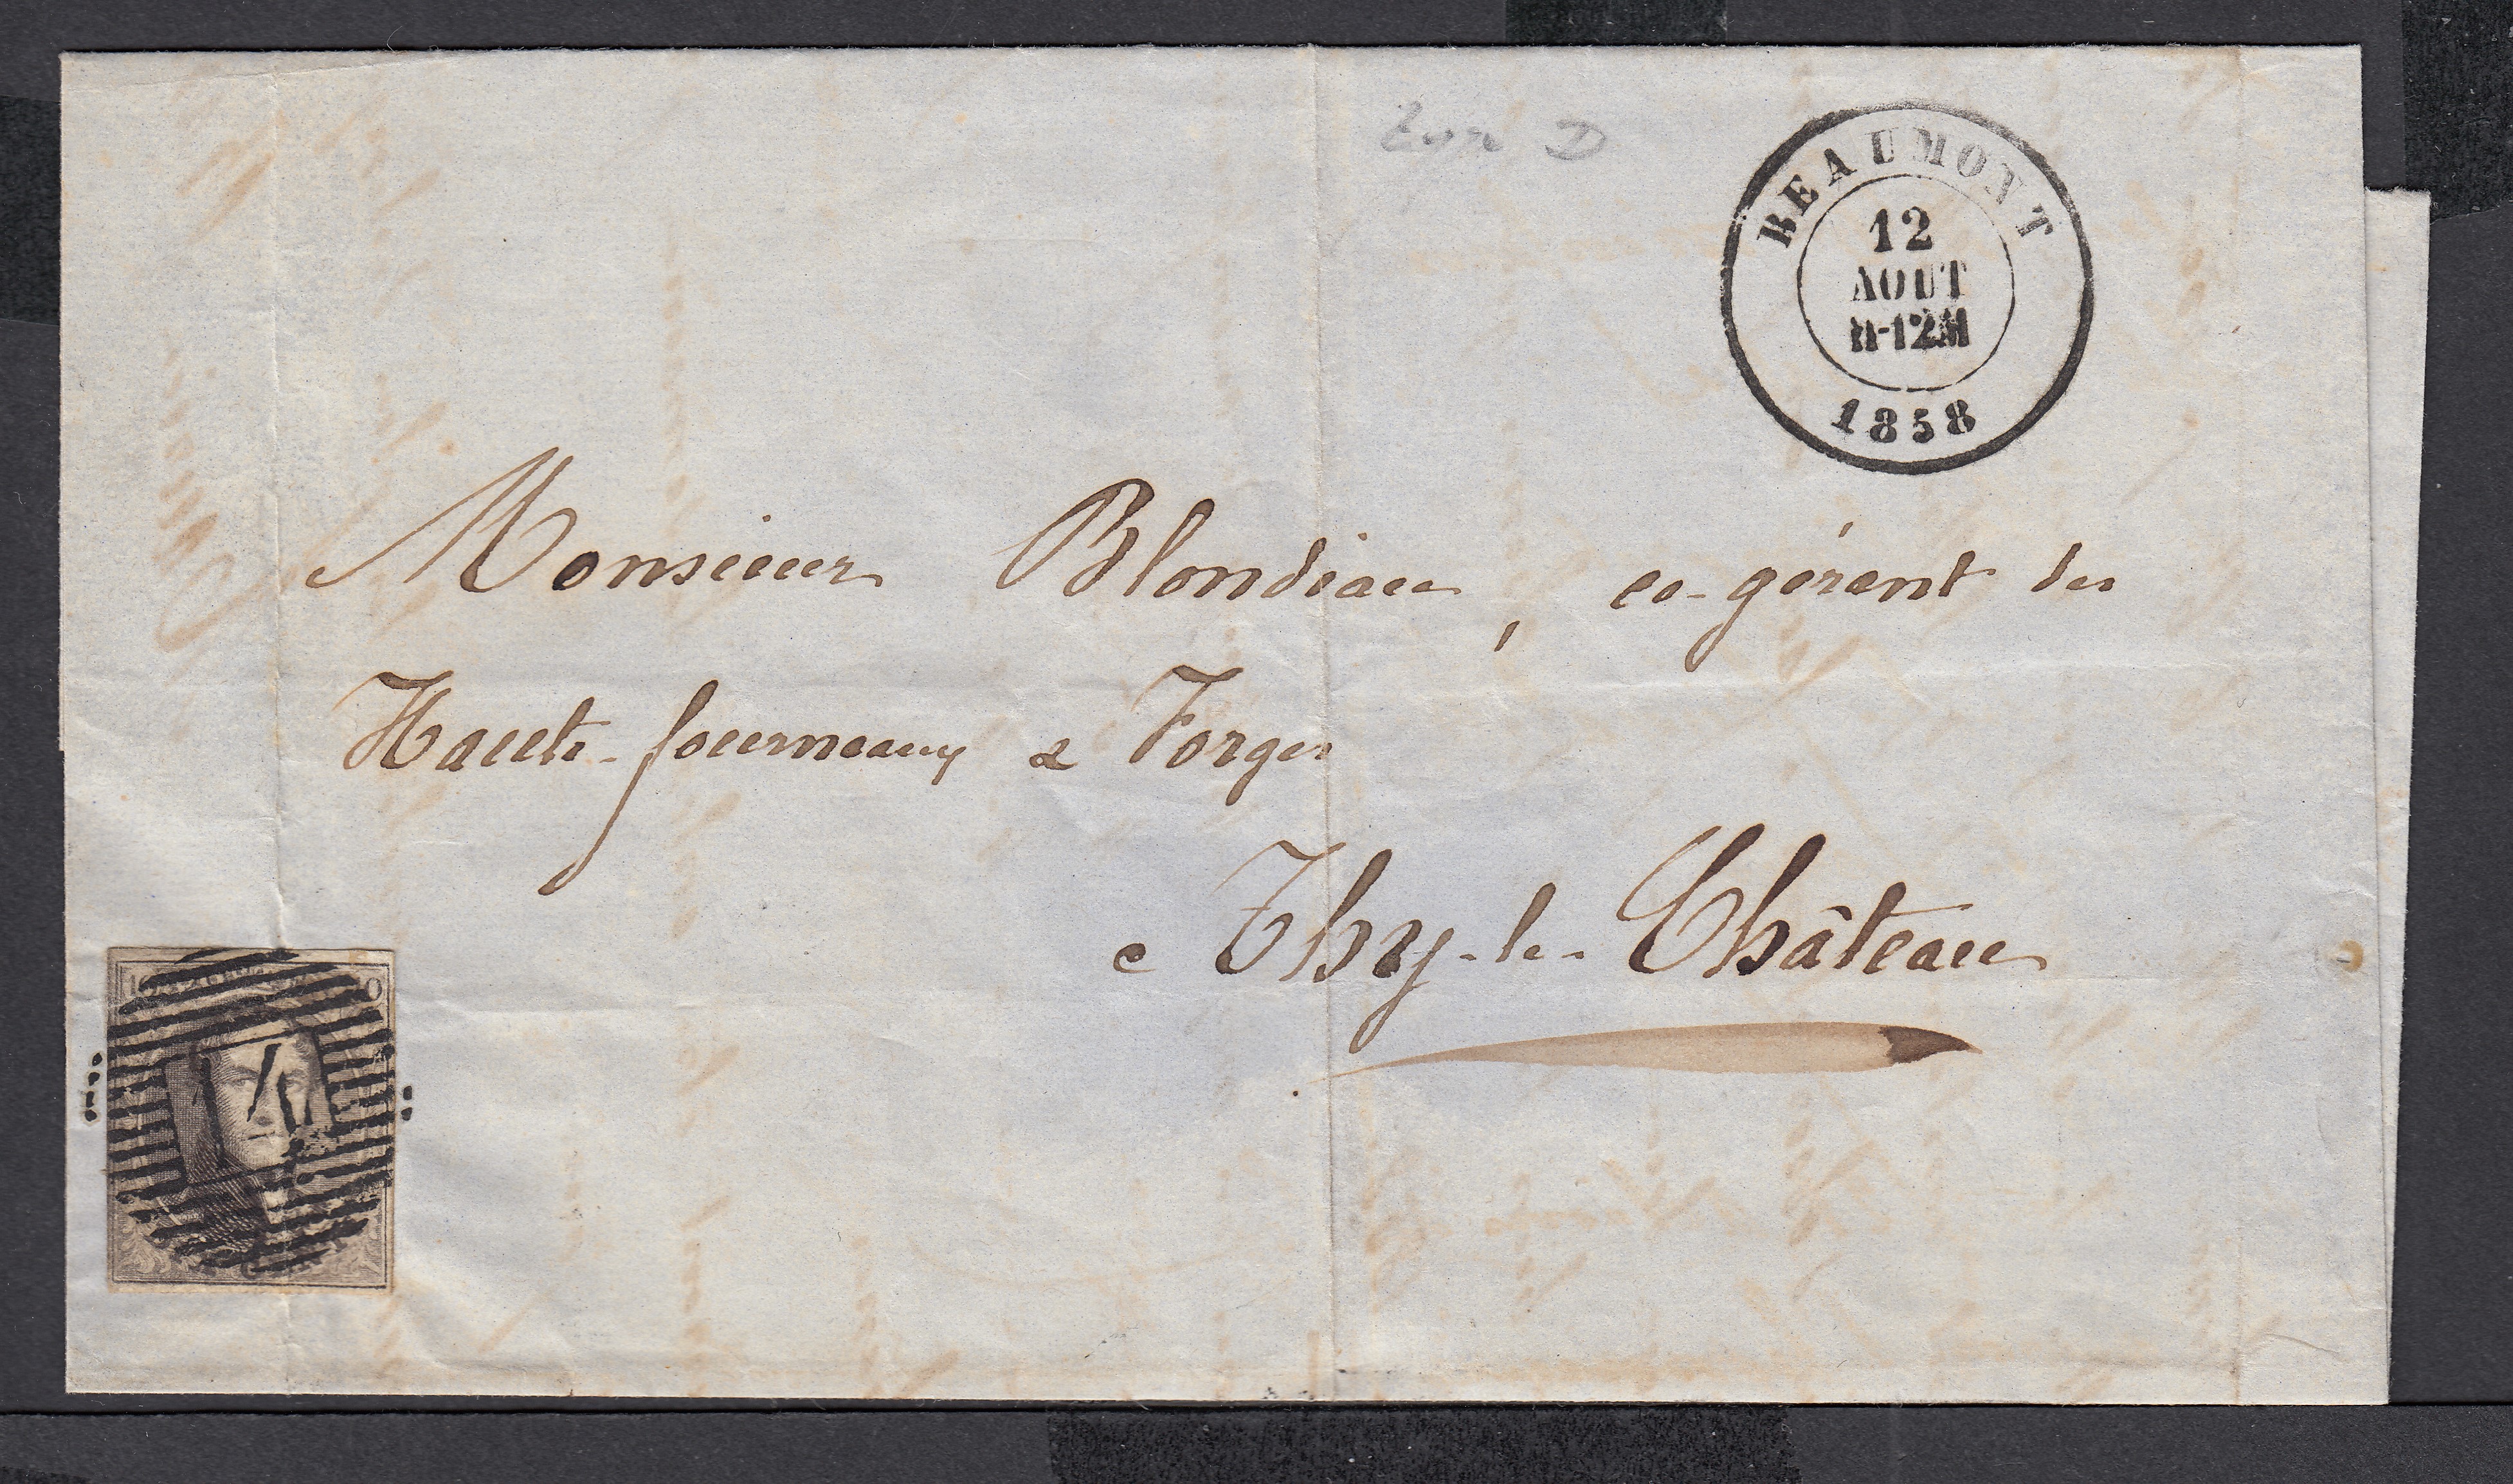 BEAUMONT
12
AOUT
11-12M
1858
Monsieur Blondiau, co-gérant des
Hauts-fourneaux & Forges
à Thy-le-Château